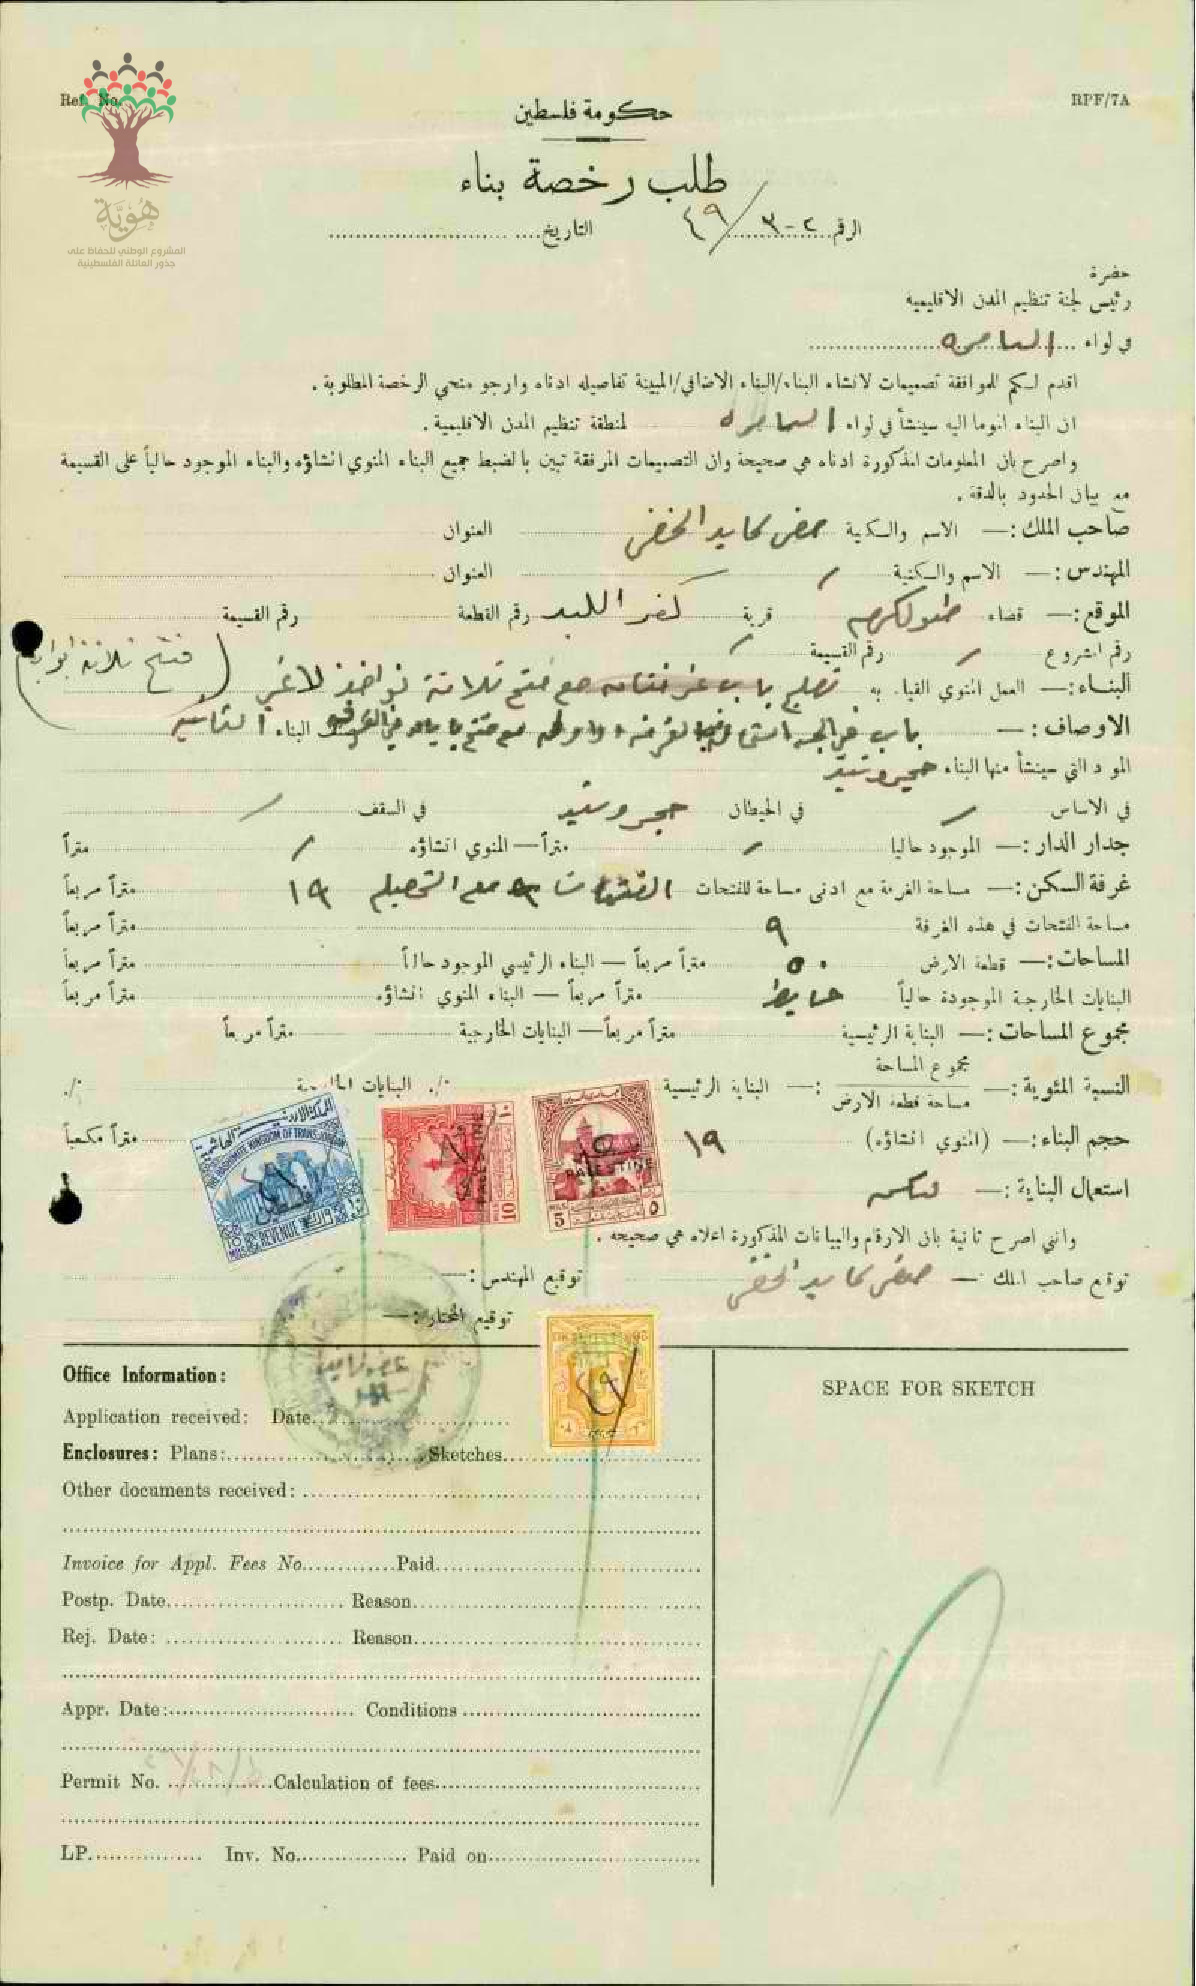 Ref. No.
RPF/7A
هُوِيَّة
المشروع الوطني للحفاظ على
جذور العائلة الفلسطينية
حكومة فلسطين
طلب رخصة بناء
الرقم ٢-٣/٤٩ التاريخ
حضرة
رئيس لجنة تنظيم المدن الاقليمية
في لواء السامره
اقدم لكم للموافقة تصميمات لانشاء البناء/البناء الاضافي/المبينة تفاصيله ادناه وارجو منحي الرخصة المطلوبة.
ان البناء الموما اليه سينشأ في لواء السامره لمنطقة تنظيم المدن الاقليمية.
واصرح بان المعلومات المذكورة ادناه هي صحيحة وان التصميمات المرفقة تبين بالضبط جميع البناء المنوي انشاؤه والبناء الموجود حالياً على القسيمة
مع بيان الحدود بالدقة.
صاحب الملك:— الاسم والكنية كايد العنوان
المهندس:— الاسم والكنية / العنوان
الموقع:— قضاء طولكرم قرية كفر اللبد رقم القطعة رقم القسيمة
رقم المشروع / رقم القسيمة
فتح ثلاثة ابواب
البناء:— العمل المنوي القيام به باب مع فتح ثلاثة نوافذ لا غير
الاوصاف:— باب البناء
المواد التي سينشأ منها البناء حجر وشيد
في الاساس / في الحيطان حجر وشيد في السقف /
جدار الدار:— الموجود حاليا / متراً— المنوي انشاؤه / متراً
غرفة السكن:— مساحة الغرفة مع ادنى مساحة للفتحات ١٩ متراً مربعاً
مساحة الفتحات في هذه الغرفة ٩ متراً مربعاً
المساحات:— قطعة الارض ٥٠ متراً مربعاً — البناء الرئيسي الموجود حالياً متراً مربعاً
البنايات الخارجة الموجودة حالياً متراً مربعاً — البناء المنوي انشاؤه متراً مربعاً
مجموع المساحات:— البناية الرئيسية متراً مربعاً— البنايات الخارجية متراً مربعاً
مجموع المساحة
النسبة المئوية:— :— البناية الرئيسية ٪. البنايات الخارجة ٪.
مساحة قطعة الارض
حجم البناء:— (المنوي انشاؤه) ١٩ متراً مكعباً
استعمال البناية:— للسكن
THE HASHEMITE KINGDOM OF TRANSJORDAN
فلسطين
REVENUE
PALESTINE
MILS 10
PALESTINE
MILS 5
٥
وانني اصرح ثانية بان الارقام والبيانات المذكورة اعلاه هي صحيحة.
توقيع صاحب الملك — كايد توقيع المهندس:—
توقيع المختار:—
٤٩
Office Information:
Application received: Date
Enclosures: Plans: Sketches
Other documents received:
Invoice for Appl. Fees No. Paid
Postp. Date Reason
Rej. Date: Reason
Appr. Date: Conditions
Permit No. Calculation of fees
LP. Inv. No. Paid on
SPACE FOR SKETCH